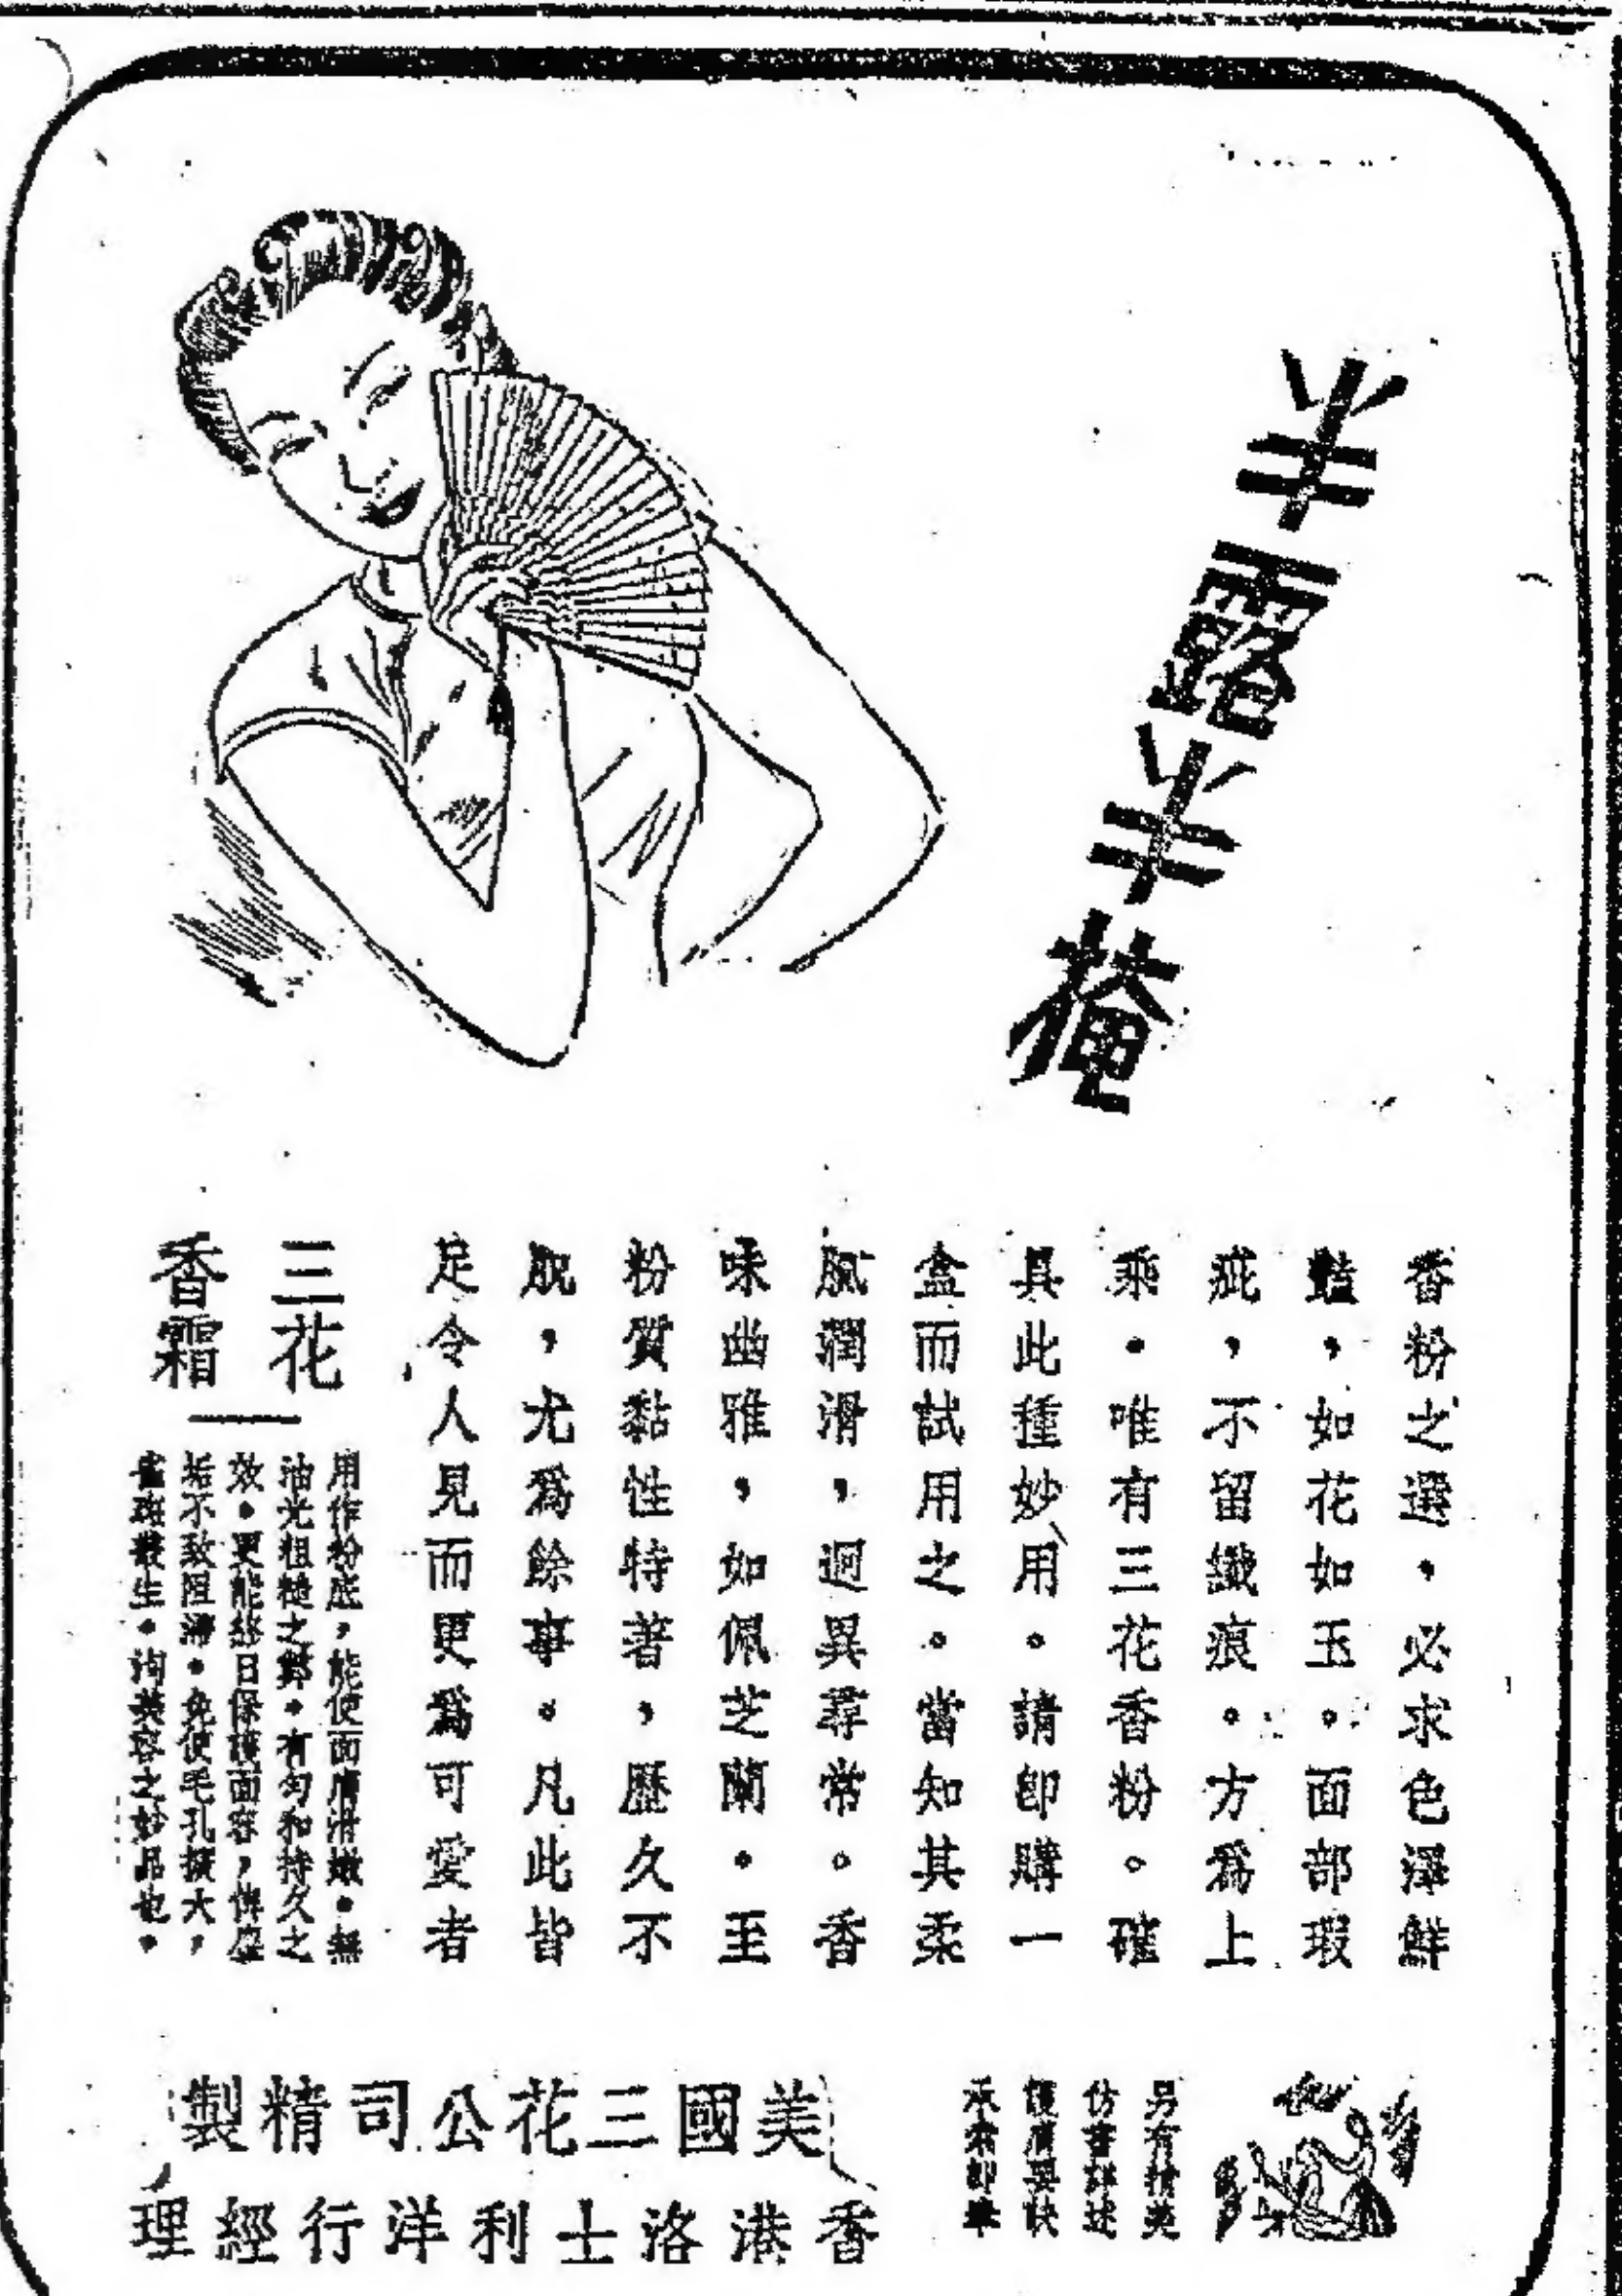 半露半掩
香粉之選・必求色澤鮮
豔，如花如玉。面部瑕
疵，不留纖痕。方為上
乘・唯有三花香粉。確
具此種妙用。請卽購一
盒而試用之。當知其柔
膩潤滑，迥異尋常。香
味幽雅，如佩芝蘭・至
粉質黏性特著，歷久不
脫，尤爲餘事。凡此皆
足令人見而更爲可愛者
三花
香霜
用作粉底，能使面膚滑嫩・無
油光粗糙之弊・有勻和持久之
效・更能終日保護面容，俾塵
垢不致阻滯・免使毛孔擴大，
生・洵美容之妙品也・
另有精美
仿書詳述
承索卽奉
美國三花公司精製
香港洛士利洋行經理